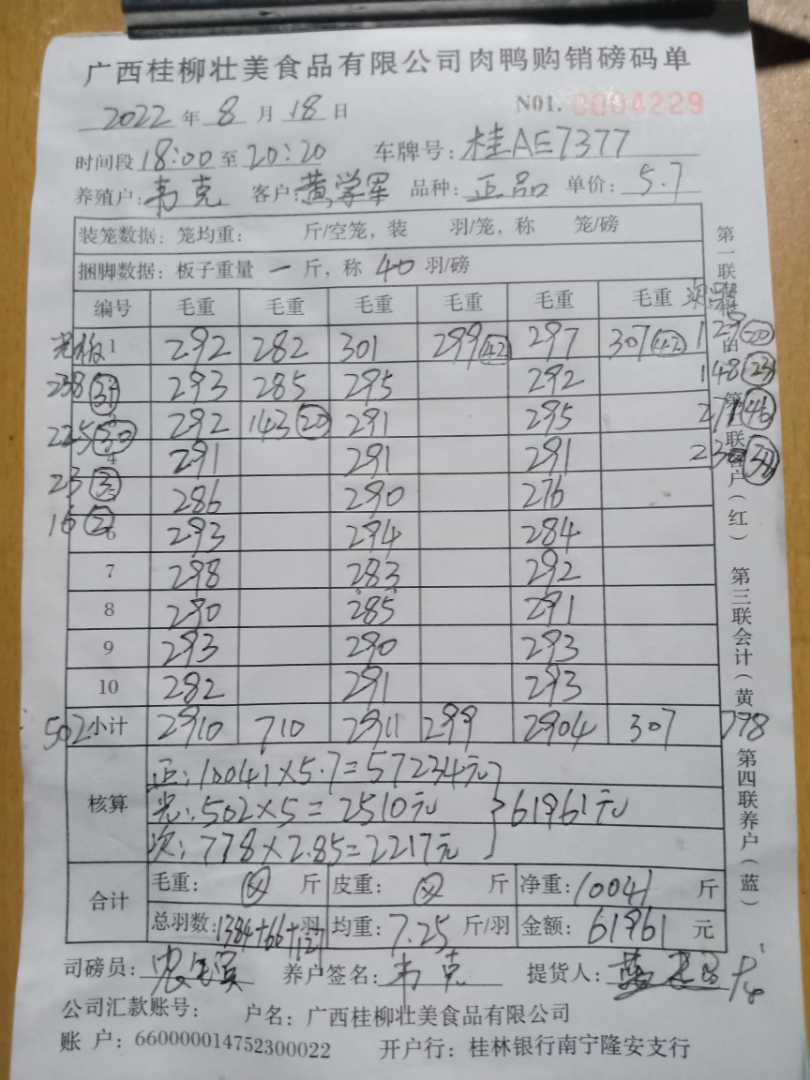 广西桂柳壮美食品有限公司肉鸭购销磅码单
2022年8月18日 N01. 0004229
时间段18:00至20:20 车牌号:桂AE7377
养殖户:韦克 客户:黄学军 品种:正品 单价:5.7
装笼数据:笼均重: 斤/空笼,装 羽/笼,称 笼/磅
捆脚数据:板子重量 一 斤,称 40 羽/磅
编号 毛重 毛重 毛重 毛重 毛重 毛重
光板 1 292 282 301 299(42) 297 307(42) 129(20)
238(31) 293 285 295 292 148(23)
225(30) 292 143(20) 291 295 271(46)
23(3) 4 291 291 291 230
16(2) 5 286 290 276
6 293 294 284
7 298 283 292
8 290 285 291
9 293 290 293
10 282 291 293
502 小计 2910 710 2911 299 2904 307 778
核算
正:10041×5.7=57234元
光:502×5=2510元 } 61961元
次:778×2.85=2217元
合计 毛重: 斤 皮重: 斤 净重:10041斤
总羽数:1384+66+121羽 均重:7.25斤/羽 金额:61961元
司磅员: 养户签名:韦克 提货人:
公司汇款账号: 户名:广西桂柳壮美食品有限公司
账 户:660000014752300022 开户行:桂林银行南宁隆安支行
第一联
第三联会计(黄)
第四联养户(蓝)